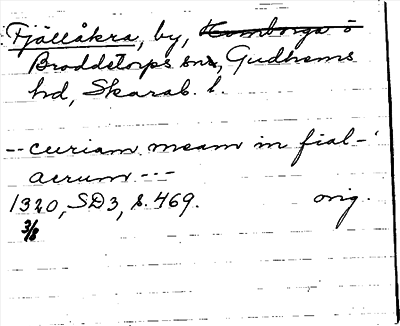 Fjällåkra, by, Komborga ö
Broddetorps sn, Gudhems
hd, Skarab. l.
-- curiam meam in fial-
acrum ---
1320, SD3, s. 469. orig.
3/8